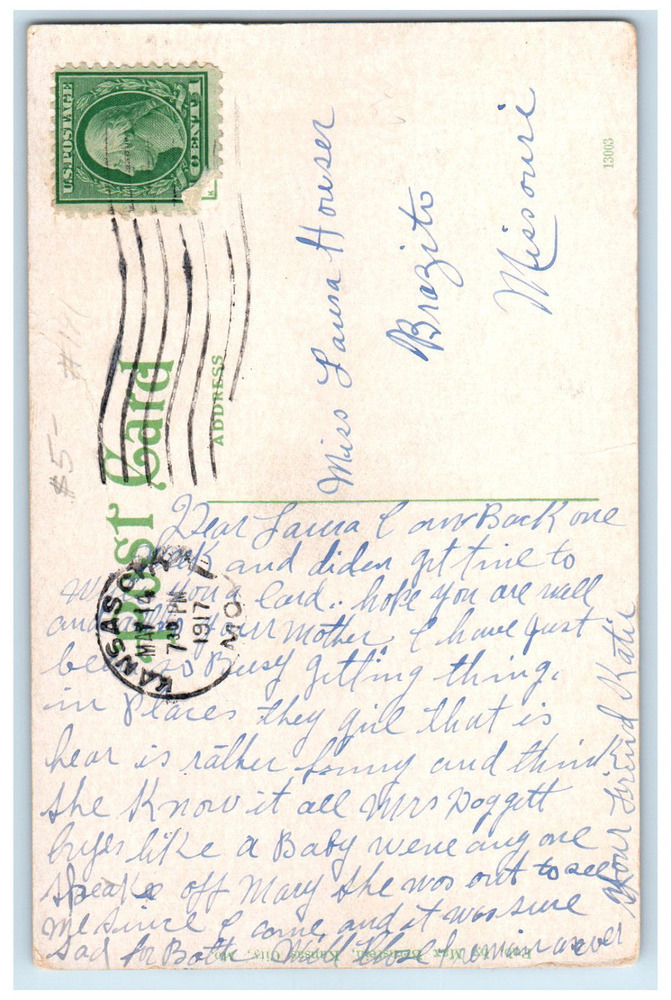 U.S. POSTAGE
1 CENT 1
13003
Miss Laura Houser
Brazito
Missouri
#191
$5-
Post Card
ADDRESS
KANSAS CITY
MAY 14
7 30 PM
1917
MO.
Dear Laura I am Back one
and diden get time to
you a Card.. hope you are well
and your Mother. I have just
been so Busy getting things
in Places they girl that is
hear is rather funny and think
she Know it all Mrs Doggett
cryes like a Baby wene any one
speake off Mary she was out to see
me since I come and it was sure
sad for Both. Will Close I remain as ever
your Friend Katie
Pub. by Max Bernstein, Kansas City, Mo.